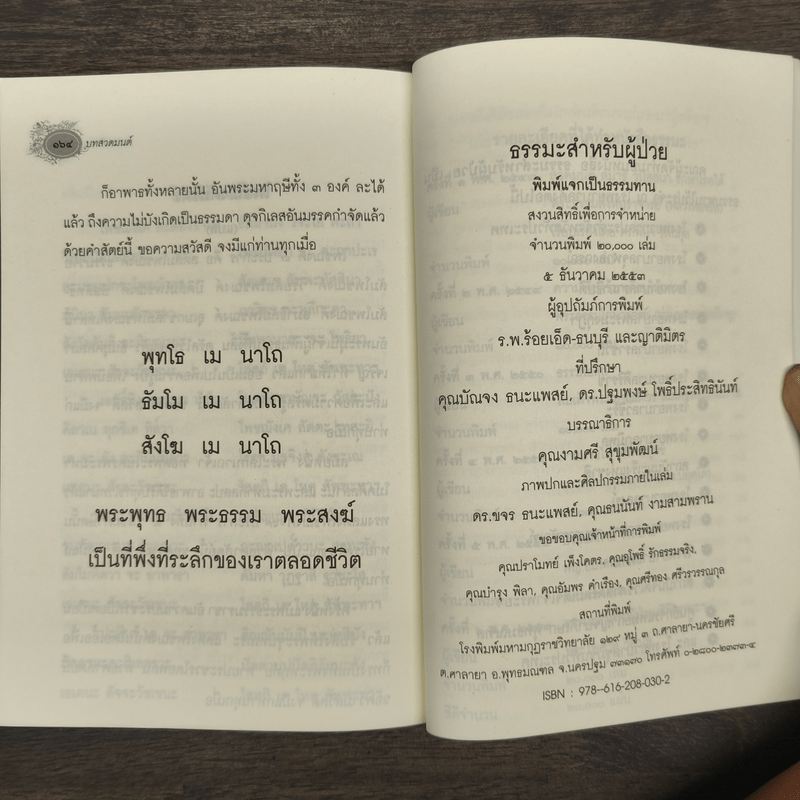 ๑๖๔ บทสวดมนต์
ก็อาพาธทั้งหลายนั้น อันพระมหาฤษีทั้ง ๓ องค์ ละได้
แล้ว ถึงความไม่บังเกิดเป็นธรรมดา ดุจกิเลสอันมรรคกำจัดแล้ว
ด้วยคำสัตย์นี้ ขอความสวัสดี จงมีแก่ท่านทุกเมื่อ
พุทโธ เม นาโถ
ธัมโม เม นาโถ
สังโฆ เม นาโถ
พระพุทธ พระธรรม พระสงฆ์
เป็นที่พึ่งที่ระลึกของเราตลอดชีวิต
ธรรมะสำหรับผู้ป่วย
พิมพ์แจกเป็นธรรมทาน
สงวนสิทธิ์เพื่อการจำหน่าย
จำนวนพิมพ์ ๒๐,๐๐๐ เล่ม
๕ ธันวาคม ๒๕๕๓
ผู้อุปถัมภ์การพิมพ์
ร.พ.ร้อยเอ็ด-ธนบุรี และญาติมิตร
ที่ปรึกษา
คุณบัณจง ธนะแพสย์, ดร.ปฐมพงษ์ โพธิ์ประสิทธินันท์
บรรณาธิการ
คุณงามศรี สุขุมพัฒน์
ภาพปกและศิลปกรรมภายในเล่ม
ดร.ขจร ธนะแพสย์, คุณธนนันท์ งามสามพราน
ขอขอบคุณเจ้าหน้าที่การพิมพ์
คุณปราโมทย์ เพ็งโคตร, คุณอุโพธิ์ รักธรรมจริง,
คุณบำรุง พิลา, คุณอัมพร คำเรือง, คุณศรีทอง ศรีวรวรรณกุล
สถานที่พิมพ์
โรงพิมพ์มหามกุฏราชวิทยาลัย ๑๒๙ หมู่ ๓ ถ.ศาลายา-นครชัยศรี
ต.ศาลายา อ.พุทธมณฑล จ.นครปฐม ๗๓๑๗๐ โทรศัพท์ ๐-๒๘๐๐-๒๓๗๓-๔
ISBN : 978--616-208-030-2